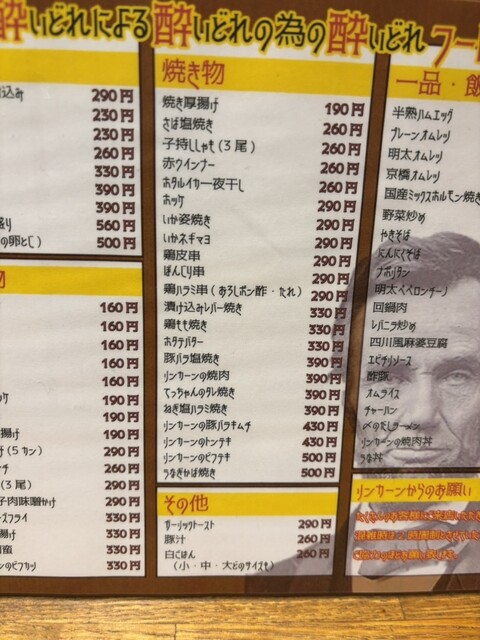 酔いどれによる酔いどれの為の酔いどれフー
込み 290円
230円
230円
260円
330円
390円
390円
盛り 560円
の卵とじ) 500円
物
160円
160円
160円
160円
160円
190円
190円
揚げ 190円
(5カン) 290円
260円
(3尾) 290円
子肉味噌かけ 290円
スフライ 330円
揚げ 330円
330円
ンのビフカツ 330円
焼き物
焼き厚揚げ 190円
さば塩焼き 260円
子持ししゃも(3尾) 260円
赤ウインナー 260円
ホタルイカ一夜干し 260円
ホッケ 290円
いか姿焼き 290円
いかネギマヨ 290円
鶏皮串 290円
ぼんじり串 290円
鶏ハラミ串(おろしポン酢・たれ) 290円
漬け込みレバー焼き 330円
鶏もも焼き 330円
ホタテバター 330円
豚バラ塩焼き 390円
リンカーンの焼肉 390円
てっちゃんのタレ焼き 390円
ねぎ塩ハラミ焼き 390円
リンカーンの豚バラキムチ 430円
リンカーンのトンテキ 430円
リンカーンのビフテキ 500円
うなぎかば焼き 500円
その他
ガーリックトースト 290円
豚汁 260円
白ごはん 260円
(小・中・大どのサイズも)
一品・飯
半熟ハムエッグ
プレーンオムレツ
明太オムレツ
京橋オムレツ
国産ミックスホルモン焼き
野菜炒め
やきそば
にんにくそば
ナポリタン
明太ペペロンチーノ
回鍋肉
レバニラ炒め
四川風麻婆豆腐
エビチリソース
酢豚
オムライス
チャーハン
〆のだしラーメン
リンカーンの焼肉丼
うな丼
リンカーンからのお願い